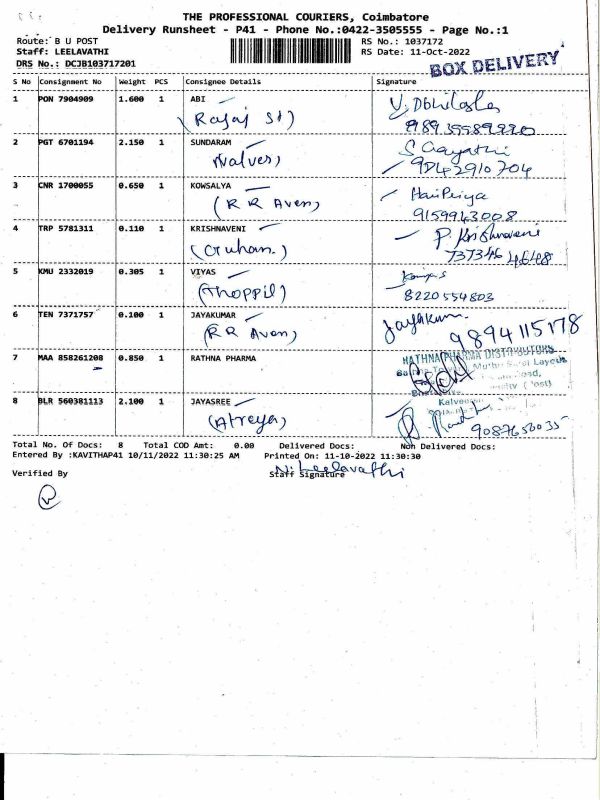 THE PROFESSIONAL COURIERS, Coimbatore
Delivery Runsheet - P41 - Phone No.:0422-3505555 - Page No.:1
Route: B U POST RS No.: 1037172
Staff: LEELAVATHI RS Date: 11-Oct-2022
DRS No.: DCJB103717201 BOX DELIVERY
S No Consignment No Weight PCS Consignee Details Signature
1 PON 7904909 1.600 1 ABI
(Rajaj St)
2 PGT 6701194 2.150 1 SUNDARAM S Gayathri
(Valves) 9042910704
3 CNR 1700055 0.650 1 KOWSALYA HariPriya
(R R Aven) 9159943008
4 TRP 5781311 0.110 1 KRISHNAVENI P. Krishnaveni
(Guhan.)
5 KMU 2332019 0.305 1 VIYAS
(Thoppil) 8220554803
6 TEN 7371757 0.100 1 JAYAKUMAR Jayakum
(R R Aven) 9894115178
7 MAA 858261208 0.850 1 RATHNA PHARMA RATHNA PHARMA DISTRIBUTORS
8 BLR 560381113 2.100 1 JAYASREE
(Atreya) 9087650035
Total No. Of Docs: 8 Total COD Amt: 0.00 Delivered Docs: Non Delivered Docs:
Entered By :KAVITHAP41 10/11/2022 11:30:25 AM Printed On: 11-10-2022 11:30:30
N. Leelavathi
Verified By Staff Signature